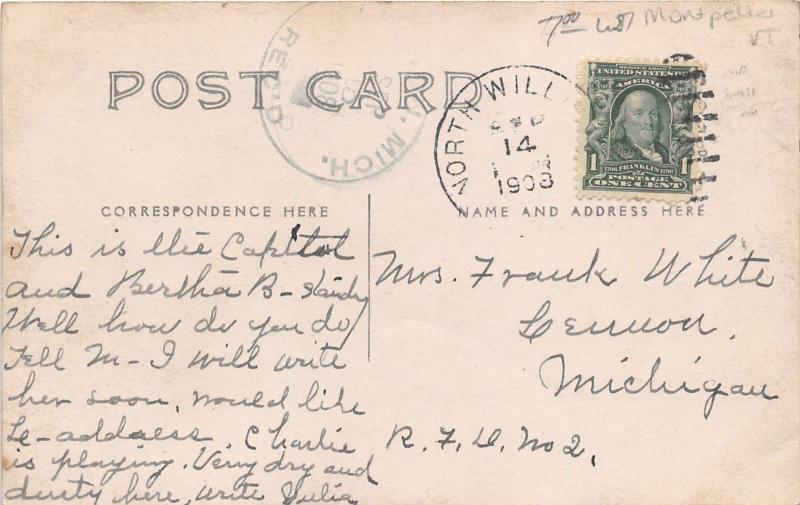 Montpelier
VT
POST CARD
REC'D
MICH.
NORTH WILLI
SEP
14
1908
SERIES 1902
UNITED STATES OF
AMERICA
1 1
1706 FRANKLIN 1790
POSTAGE
ONE CENT
CORRESPONDENCE HERE
NAME AND ADDRESS HERE
This is the Capitol
and Bertha B-
Well how do you do
Tell M- I will write
her soon, would like
Le- address. Charlie
is playing. Very dry and
dusty here, write Julia
Mrs. Frank White
Lennon,
Michigan
R. F. D. No 2,